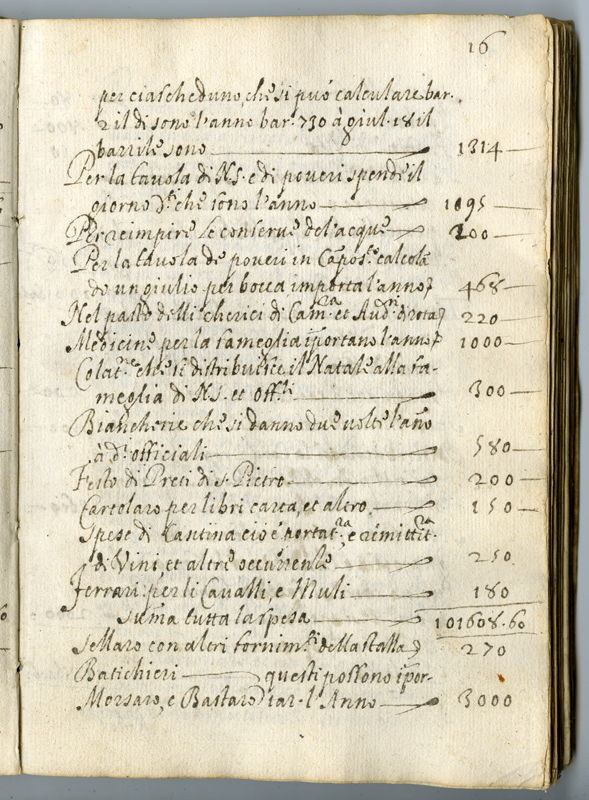 16
per ciascheduno, che si può calculare bar.
2 il di sono l'anno bar. 730 à giul. 18 il
barrile sono 1314
Per la tavola di N.S. e di poveri spende il
giorno che sono l'anno 1095
Per reimpire le conserve del'acque 200
Per la tavola de poveri in Capos.te calcolā
do un giulio per bocca importa l'anno 468
Nel pasto delli cherici di Cam.ra et Aud.ri di rota 220
Medicine per la fameglia iportano l'anno 1000
Colat.ne che si distribuisce il Natale alla fa-
meglia di N.S. et off.li 300
Biancherie che si danno due volte l'año
à d.i officiali 580
Festo di Preti di s. Pietro 200
Cartolaro per libri carta, et altro 150
Spese di Cantina cioè portat.ra e rimittit.ra
di Vini et altre occurrente 250
Ferrari per li Cavalli, e Muli 180
Suma tutta la spesa 101608.60
Sellaro con altri fornim.ti della stalla 270
Batichieri questi possono ipor-
Morsaro, e Bastaro tar. l'Anno 3000